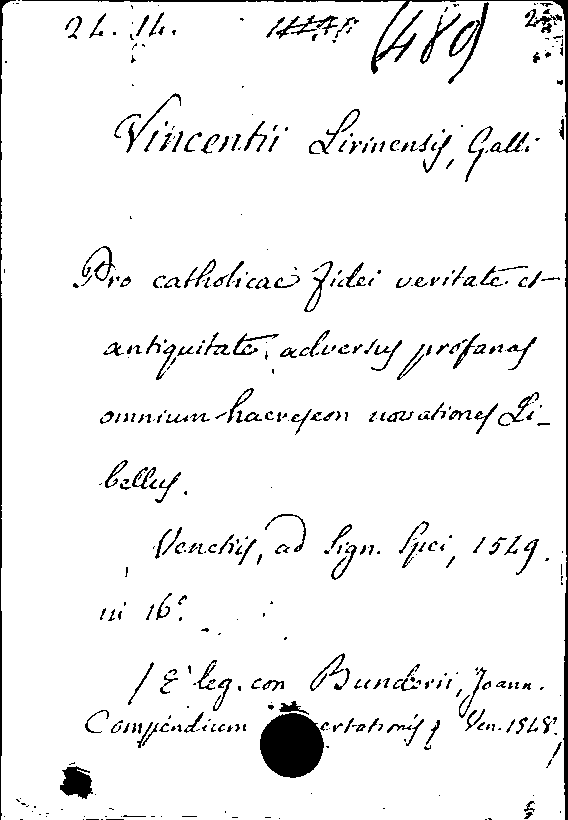 24. 14. (489)
Vincentii Lirinensis, Galli
Pro catholicae fidei veritate et
antiquitate, adversus profanas
omnium haereseon novationes Li-
bellus.
Venetiis, ad Sign. Spei, 1549.
in 16º.
/ E' leg. con Bunderii, Joann.
Compendium ertationis Ven. 1548.